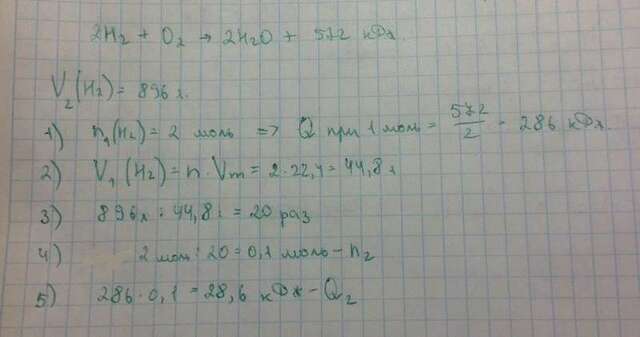 2H₂ + O₂ → 2H₂O + 572 кДж.
V₂(H₂) = 896 л.
1) n₁(H₂) = 2 моль => Q при 1 моль = 572/2 = 286 кДж.
2) V₁(H₂) = n · Vm = 2 · 22,4 = 44,8 л
3) 896 л : 44,8 л = 20 раз
4) 2 моль : 20 = 0,1 моль – n₂
5) 286 · 0,1 = 28,6 кДж – Q₂